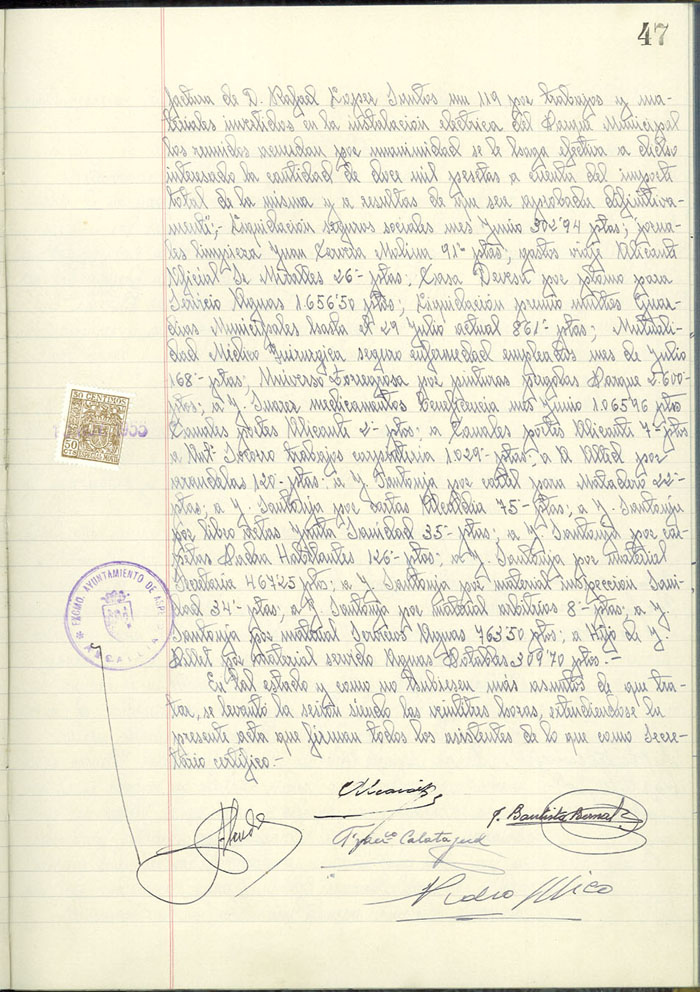 47
factura de D. Rafael Lopez Santos nº 119 por trabajos y ma-
teriales invertidos en la instalación eléctrica del Parque Municipal
los reunidos acuerdan por unanimidad se le haga efectiva a dicho
interesado la cantidad de doce mil pesetas a cuenta del importe
total de la misma y a resultas de que sea aprobada definitiva-
mente";- Liquidación seguros sociales mes Junio 302'94 ptas; jorna-
les limpieza Juan Molina 91'- ptas, gastos viaje Alicante
Oficial Sr. Miralles 26'- ptas; Casa Devesa por plomo para
Servicio Aguas 1.656'50 ptas; Liquidación premio multas Guar-
dias Municipales hasta el 29 Julio actual 861'- ptas; Mutuali-
dad Médico Quirurgica seguro enfermedad empleados mes de Julio
168'- ptas; Universo Torregrosa por pinturas Parque 2.600'-
ptas; a J. Suarez medicamentos Beneficencia mes Junio 1.065'76 ptas
Canales portes Alicante 2'- ptas; a Canales portes Alicante 7'- ptas
a Rafˡ trabajos carpinteria 1.029'- ptas; a R. por
arandelas 120'- ptas; a J. Santonja por cartel para Matadero 22'-
ptas; a J. Santonja por cartas Alcaldia 75'- ptas, a J. Santonja
por libro actas Junta Sanidad 35'- ptas; a J. Santonja por car-
petas Padron Habitantes 126'- ptas; a J. Santonja por material
Secretaria 467'25 ptas; a J. Santonja por material inspección Sani-
dad 34'- ptas, a J. Santonja por material arbitrios 8'- ptas; a J.
Santonja por material Servicio Aguas 763'50 ptas; a Hijo de J.
por material servicio Aguas Potables 309'70 ptas.-
En tal estado y como no hubiesen más asuntos de que tra-
tar, se levantó la sesión siendo las veintitres horas, extendiendose la
presente acta que firman todos los asistentes de lo que como Secre-
tario certifico.-
50 CENTIMOS
50
CTS
EXCMO. AYUNTAMIENTO DE
ALCALDIA
J. Bautista Bernal
Ignº Calatayud
Pedro Mico